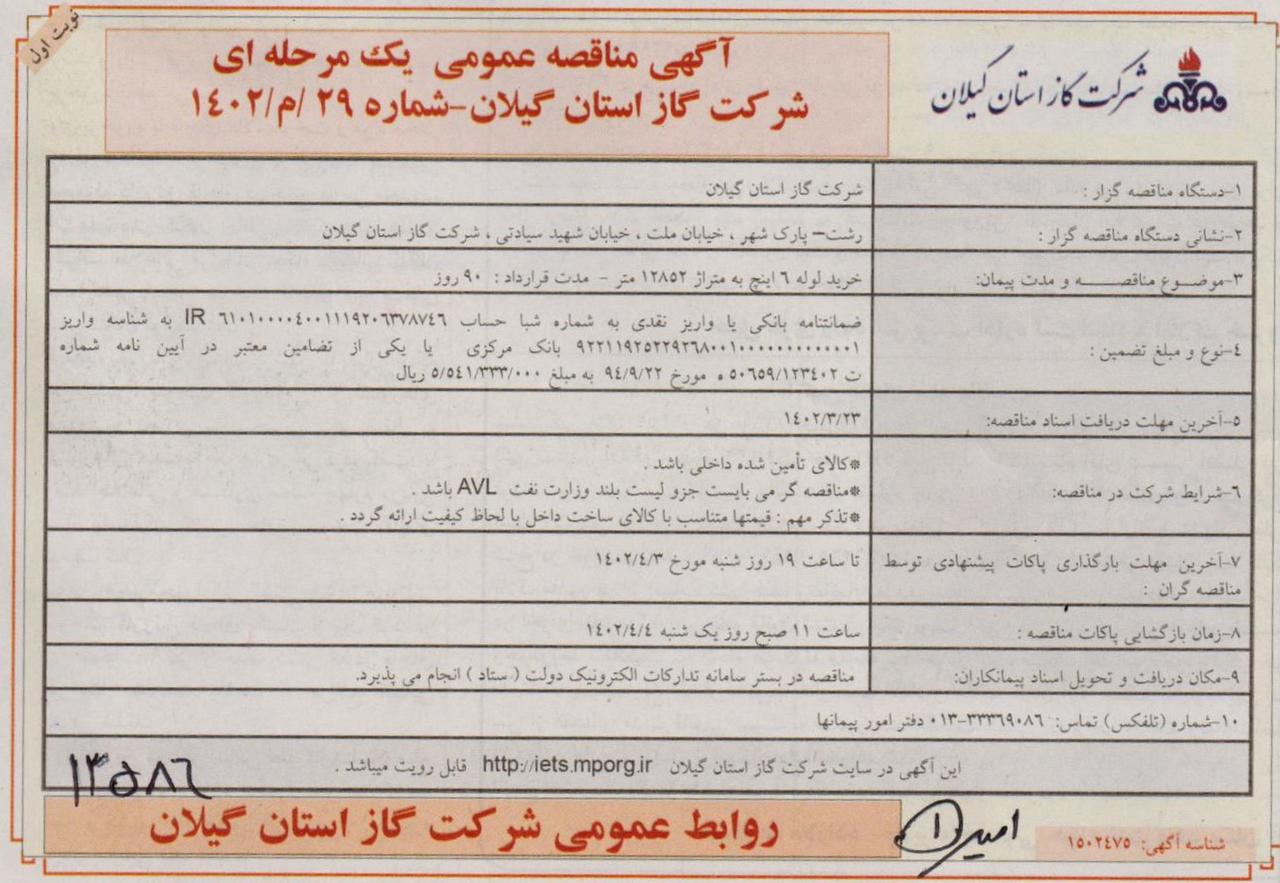 نوبت اول
شرکت گاز استان گیلان
آگهی مناقصه عمومی یک مرحله ای
شرکت گاز استان گیلان-شماره ۲۹ /م/۱۴۰۲
۱-دستگاه مناقصه گزار : شرکت گاز استان گیلان
۲-نشانی دستگاه مناقصه گزار : رشت- پارک شهر ، خیابان ملت ، خیابان شهید سیادتی ، شرکت گاز استان گیلان
۳-موضوع مناقصه و مدت پیمان: خرید لوله ۶ اینچ به متراژ ۱۲۸۵۲ متر - مدت قرارداد : ۹۰ روز
۴-نوع و مبلغ تضمین :
ضمانتنامه بانکی یا واریز نقدی به شماره شبا حساب IR ۶۱۰۱۰۰۰۰۴۰۰۱۱۱۹۲۰۶۳۷۸۷۴۶ به شناسه واریز
۹۲۲۱۱۹۲۵۲۲۹۲۶۸۰۰۱۰۰۰۰۰۰۰۰۰۰۰۰۱ بانک مرکزی یا یکی از تضامین معتبر در آیین نامه شماره
۱۲۳۴۰۲/ت ۵۰۶۵۹ ه مورخ ۹۴/۹/۲۲ به مبلغ ۵/۵۴۱/۳۳۳/۰۰۰ ریال
۵-آخرین مهلت دریافت اسناد مناقصه: ۱۴۰۲/۳/۲۳
۶-شرایط شرکت در مناقصه:
*کالای تأمین شده داخلی باشد .
*مناقصه گر می بایست جزو لیست بلند وزارت نفت AVL باشد .
*تذکر مهم : قیمتها متناسب با کالای ساخت داخل با لحاظ کیفیت ارائه گردد .
۷-آخرین مهلت بارگذاری پاکات پیشنهادی توسط
مناقصه گران :
تا ساعت ۱۹ روز شنبه مورخ ۱۴۰۲/۴/۳
۸-زمان بازگشایی پاکات مناقصه : ساعت ۱۱ صبح روز یک شنبه ۱۴۰۲/۴/۴
۹-مکان دریافت و تحویل اسناد پیمانکاران: مناقصه در بستر سامانه تدارکات الکترونیک دولت ( ستاد ) انجام می پذیرد.
۱۰-شماره (تلفکس) تماس: ۳۳۳۶۹۰۸۶-۰۱۳ دفتر امور پیمانها
این آگهی در سایت شرکت گاز استان گیلان http://iets.mporg.ir قابل رویت میباشد .
۱۳۵۸۶
روابط عمومی شرکت گاز استان گیلان
امیر ۱
شناسه آگهی: ۱۵۰۲۴۷۵